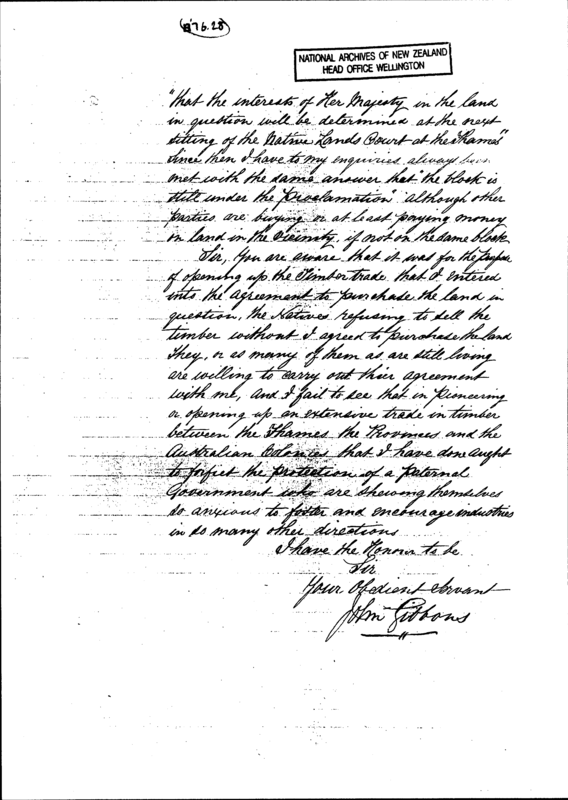 276.28
NATIONAL ARCHIVES OF NEW ZEALAND
HEAD OFFICE WELLINGTON
"that the interests of Her Majesty in the land
in question will be determined at the next
sitting of the Native Lands Court at the Thames"
Since then I have to my enquiries always been
met with the same answer that "the block is
still under the proclamation" although other
parties are buying or at least paying money
on land in the vicinity, if not on the same block
Sir, You are aware that it was for the purpose
of opening up the Timber trade that I entered
into the agreement to purchase the land in
question, the Natives refusing to sell the
timber without I agreed to purchase the land
They, or as many of them as are still living
are willing to carry out their agreement
with me, and I fail to see that in pioneering
or opening up an extensive trade in timber
between the Thames the Provinces and the
Australian Colonies that I have done aught
to forfeit the protection of a paternal
Government who are shewing themselves
so anxious to foster and encourage industries
in so many other directions
I have the Honour to be
Sir
Your Obedient Servant
John Gibbons